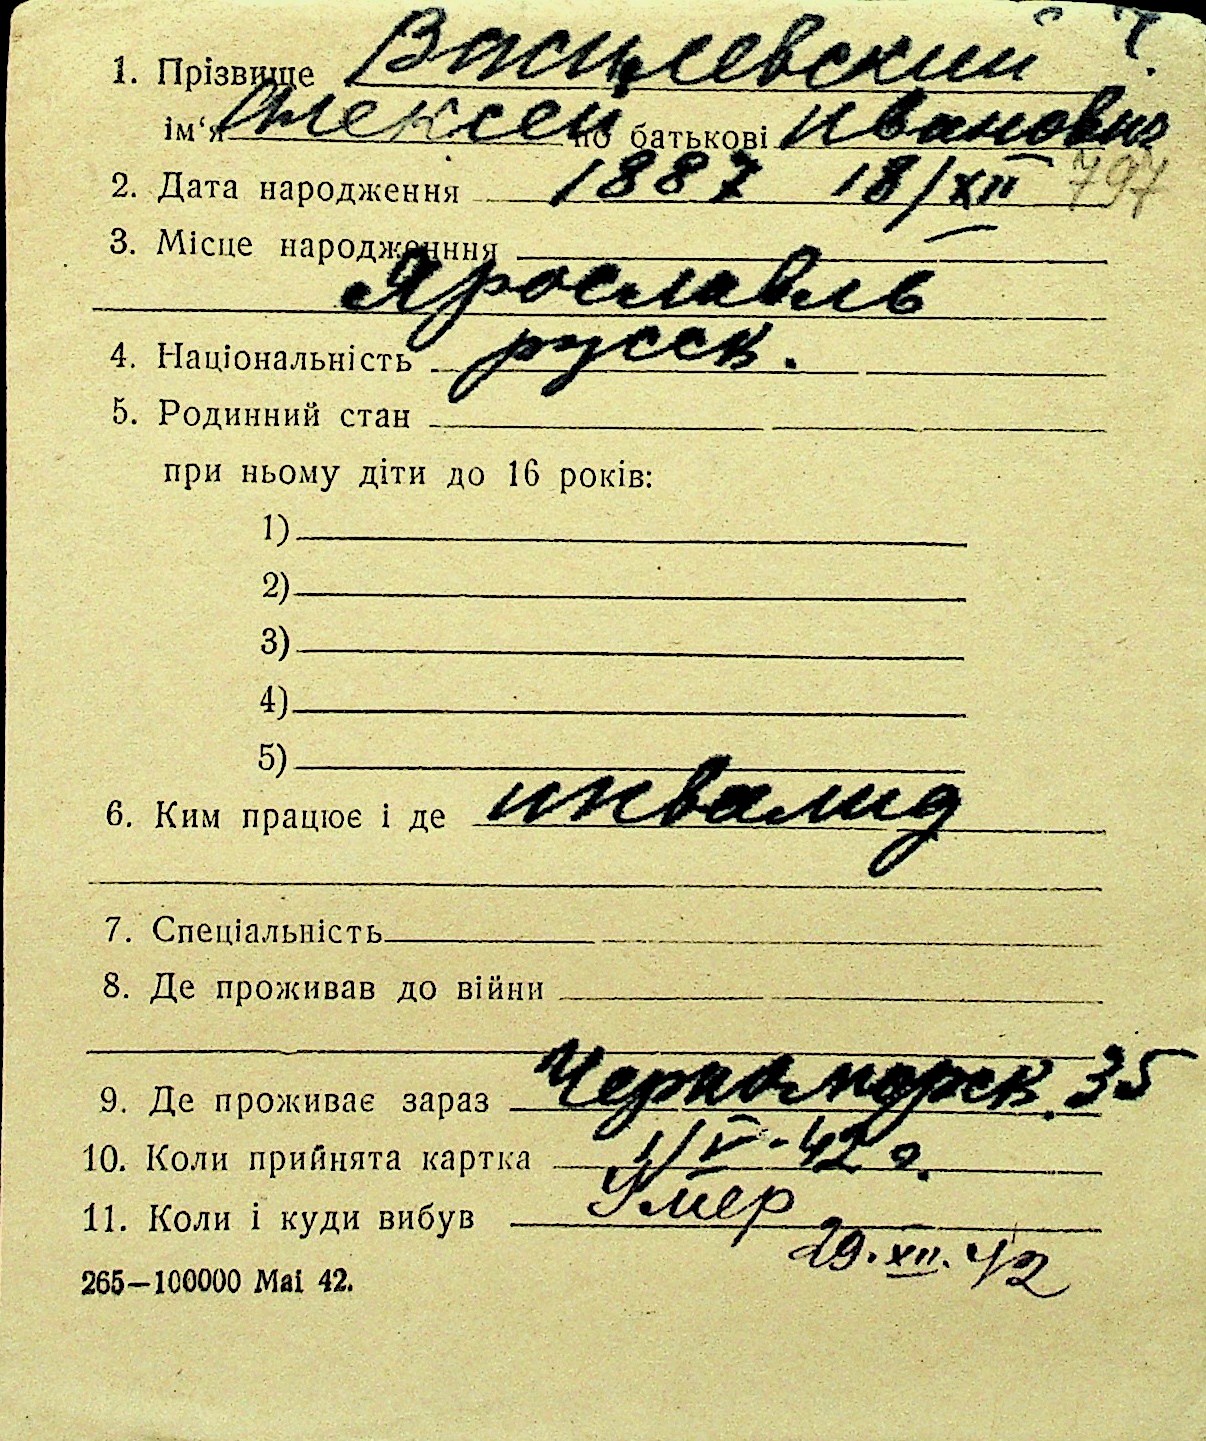 1. Прізвище Василевский Ч.
ім‘я Алексей по батькові Иванович
2. Дата народження 1887 18/XII 797
3. Місце народженння
Ярославль
4. Національність русск.
5. Родинний стан
при ньому діти до 16 років:
1)
2)
3)
4)
5)
6. Ким працює і де инвалид
7. Спеціальність
8. Де проживав до війни
9. Де проживає зараз Черноморск. 35
10. Коли прийнята картка 1/V-42 г.
11. Коли і куди вибув Умер
29.XII.42
265—100000 Mai 42.